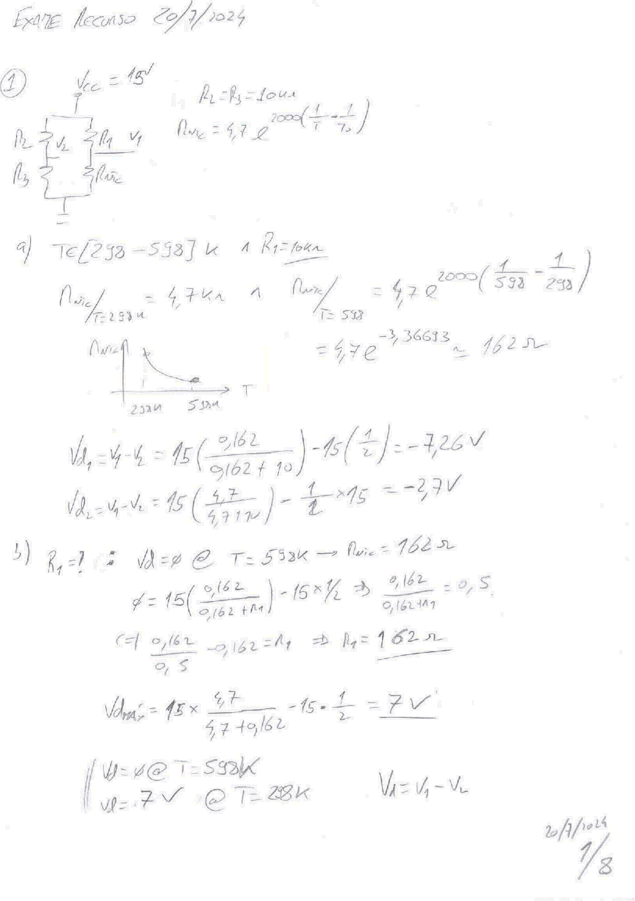 EXAME RECURSO 20/7/2024
1
Vcc = 15V
R2 = R3 = 10KΩ
Rntc = 4,7 e^2000(1/T - 1/To)
R2 V2 R1 V1
R3 Rntc
a) T∈[298-598] K ∧ R1=10KΩ
Rntc/T=298K = 4,7KΩ ∧ Rntc/T=598 = 4,7 e^2000(1/598 - 1/298)
= 4,7 e^-3,36693 ≃ 162Ω
Rntc
T
298K 598K
Vd1 = V1-V2 = 15(0,162/0,162+10) - 15(1/2) = -7,26V
Vd2 = V1-V2 = 15(4,7/4,7+10) - 1/2 × 15 = -2,7V
b) R1=? : Vd=ø @ T=598K → Rntc = 162Ω
ø = 15(0,162/0,162+R1) - 15×1/2 ⇒ 0,162/0,162+R1 = 0,5
(=) 0,162/0,5 - 0,162 = R1 ⇒ R1 = 162Ω
Vdmáx = 15 × 4,7/4,7+0,162 - 15·1/2 = 7V
Vd=ø @ T=598K
Vd=7V @ T=298K
Vd = V1-V2
20/7/2024
1/8